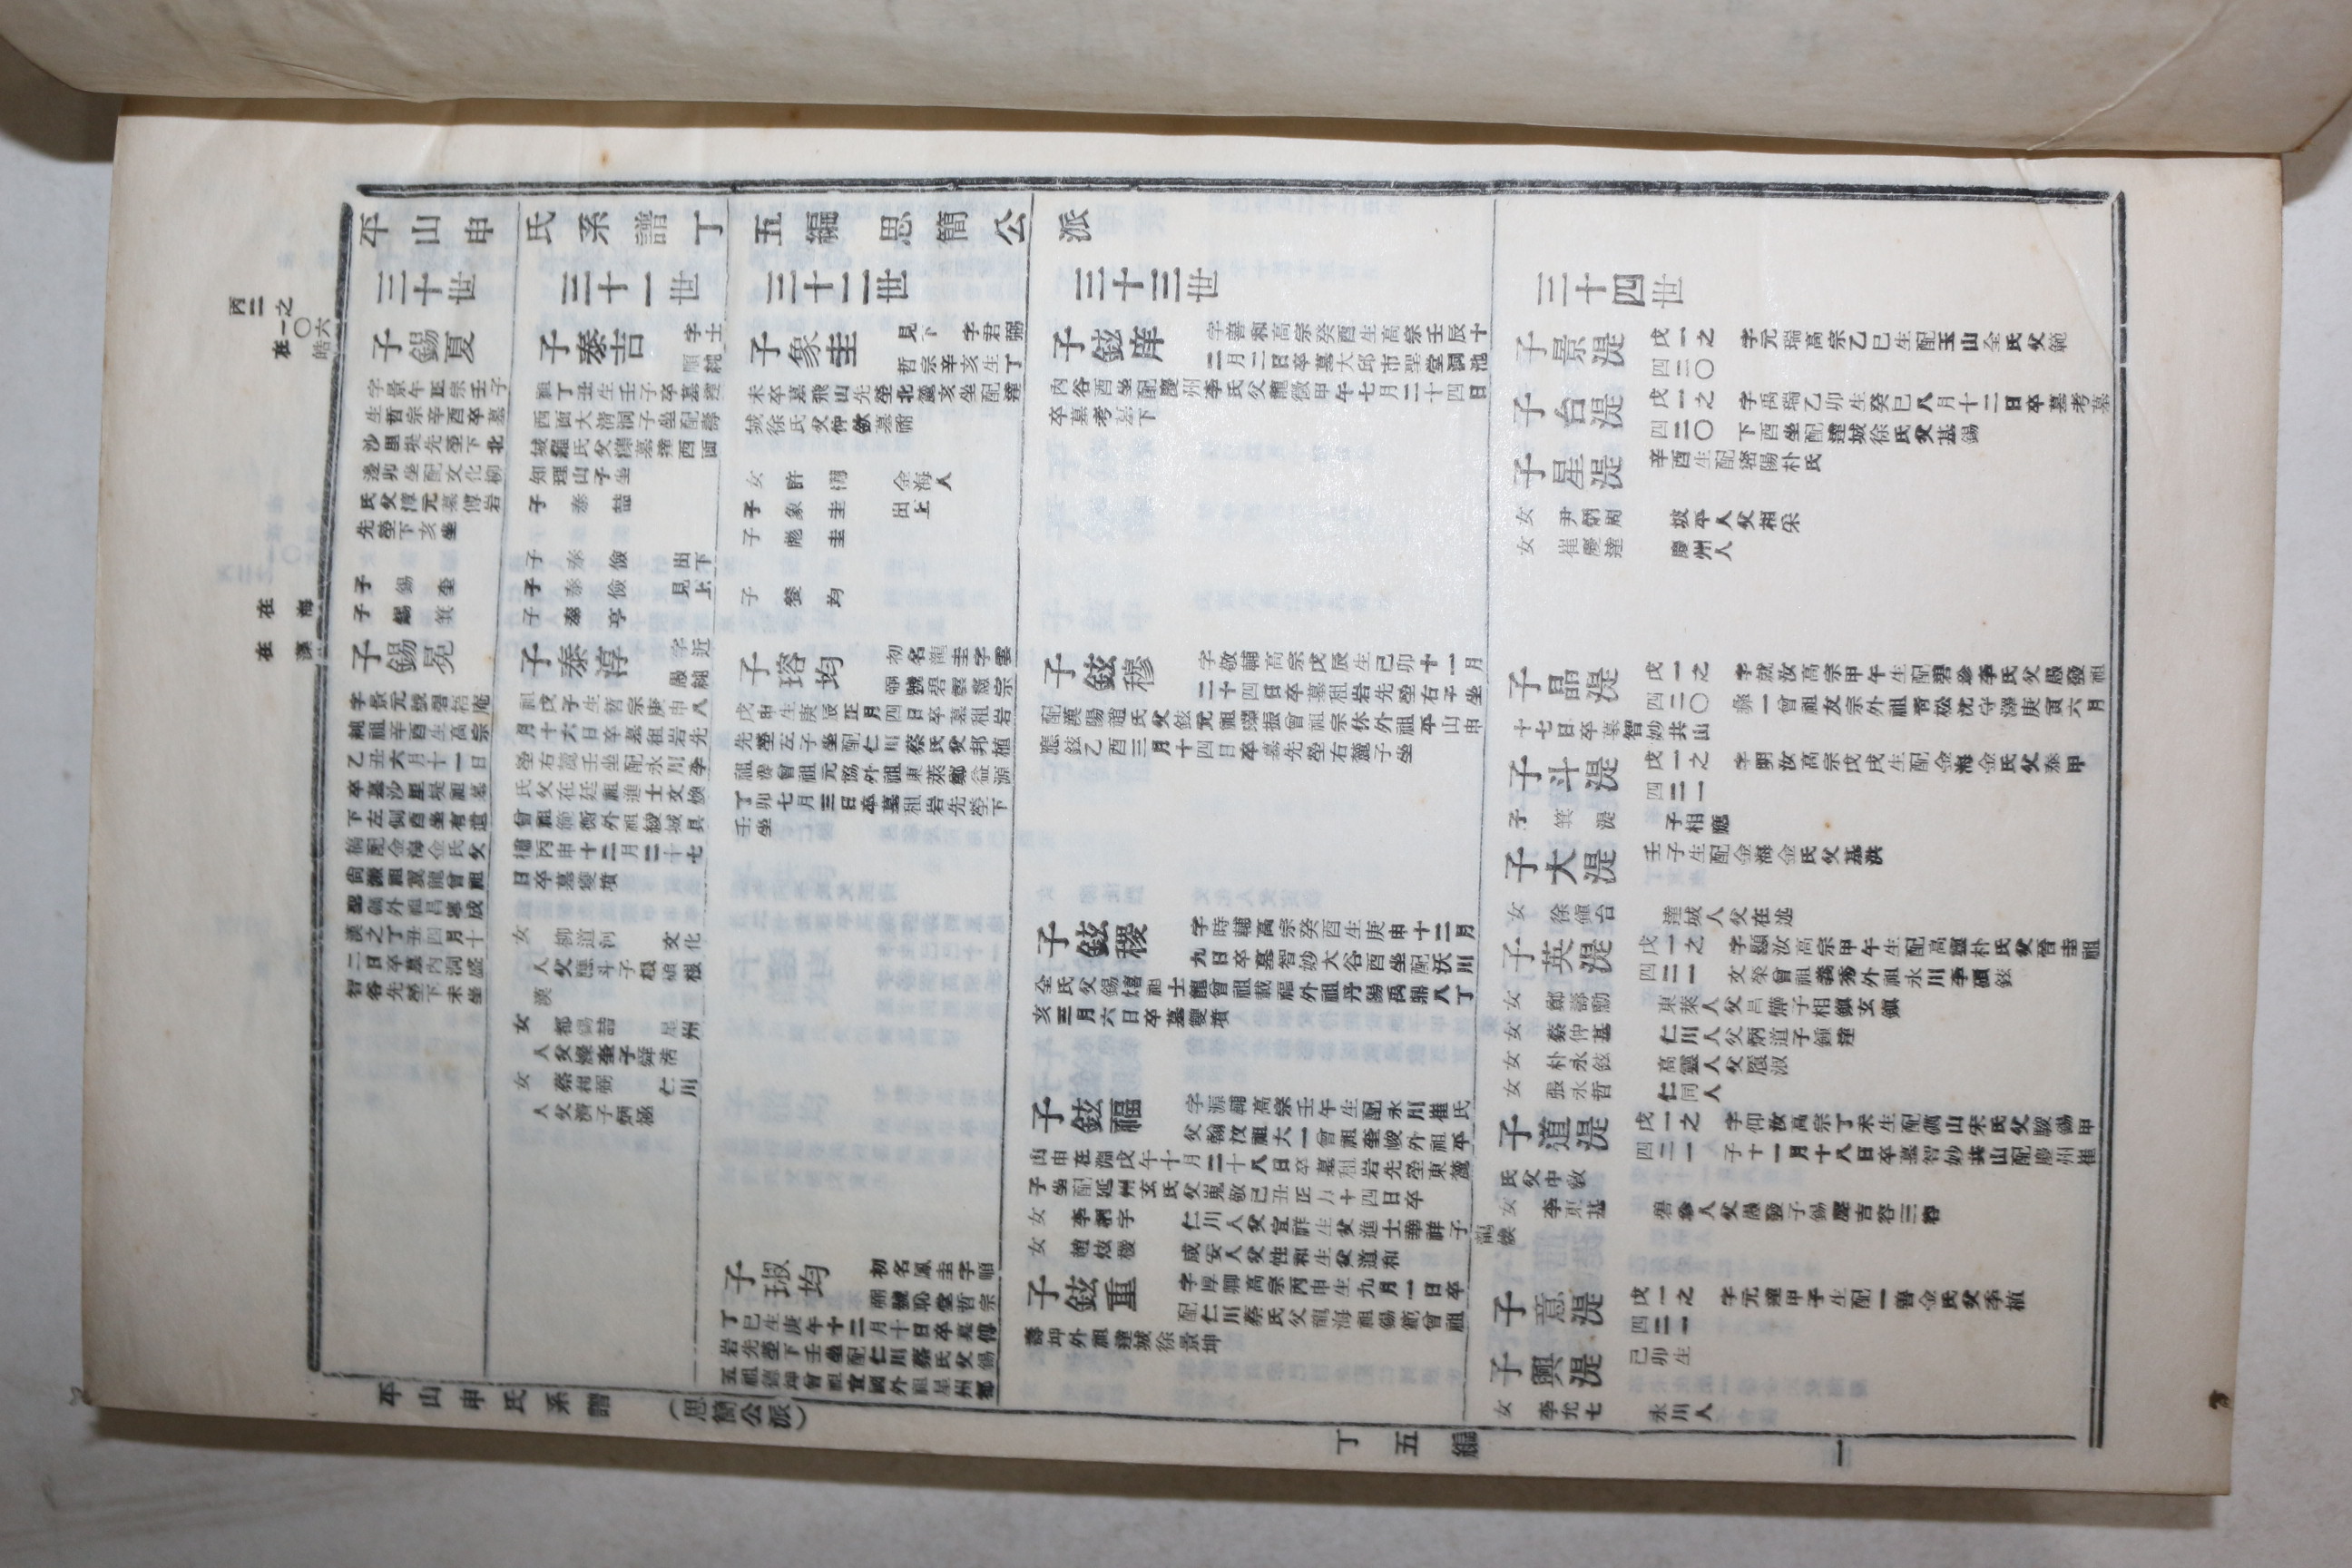 平山申氏系譜丁五編思簡公派
丙二之
一〇六
在皓
在海
在藻
三十世
子錫夏
字景午正宗壬子
生哲宗辛酉卒墓
沙里堤先塋下北
邊卯坐配文化柳
氏父漳元墓傅岩
先塋下亥坐
子錫奎
子錫箕
子錫冕
字景元號碧梧庵
純祖辛酉生高宗
乙丑六月十一日
卒墓沙里堤祖墓
下左側酉坐有遺
稿配金海金氏父
尙
漢之丁丑四月十
二日卒墓內洞盛
智谷先塋下未坐
三十一世
子泰吉
字士
順純
祖丁丑生壬子卒墓達
西面大淸洞子坐配壽
城羅氏父 墓達西面
知理山子坐
子泰喆
子泰儉 出下
子泰儉 見上
子泰亨
子泰淳
字近
愚純
祖戊子生哲宗庚申八
月十六日卒墓租岩先
塋右麓壬坐配永川李
氏父在廷祖進士文煥
曾祖範衡外祖綾城具
丙申十二月二十七
日卒墓雙墳
女 柳道河 文化
人父應斗子根碩根
漢
女 都錫喆 星州
人父燦奎子舜浩
女 蔡相弼 仁川
人父濟子炳極
三十二世
子象圭
見下 字君弼
哲宗辛亥生丁
未卒墓飛山先塋北麓亥坐配達
城徐氏父仲欽墓祔
女 許澗 金海人
子象圭 出上
子彪圭
子燮均
子瑢均
初名龍圭字雲
弼號碧 憲宗
戊申生庚辰正月四日卒墓租岩
先塋左子坐配仁川蔡氏父邦植
祖 曾祖元協外祖東萊鄭益源
丁卯七月三日卒墓租岩先塋下
壬坐
子琡均
初名鳳圭字順
弼號恥堂哲宗
丁巳生庚午十二月十日卒墓傅
岩先塋下壬坐配仁川蔡氏父錫
五祖德坤曾祖宜國外祖星州都
三十三世
子鉉庠
字善和高宗癸酉生高宗壬辰十
二月二日卒墓大邱市聖堂洞池
內谷酉坐配慶州李氏父龍徵甲午七月二十四日
卒墓考墓下
子鉉穆
字敬輔高宗戊辰生己卯十一月
二十四日卒墓租岩先塋右子坐
配漢陽趙氏父鉉元祖璨振曾祖宗休外祖平山申
應鉉乙酉三月十四日卒墓先塋右麓子坐
子鉉稷
字時輔高宗癸酉生庚申十二月
九日卒墓智妙大谷酉坐配沃川
全氏父錫熺祖士龍曾祖載福外祖丹陽禹鼎八丁
亥三月六日卒墓雙墳
子鉉福
字源輔高宗壬午生配永川崔氏
父翰汶祖大一曾祖奎峻外祖平
山申在淵戊午十月二十八日卒墓租岩先塋東麓
子坐配延州玄氏父嵬敬己丑正月十四日卒
女 李 宇 仁川人父宜祥生父進士華祥子龍煥
女 趙炫稷 咸安人父性和生父道和
子鉉重
字厚卿高宗丙申生九月一日卒
配仁川蔡氏父龍海祖錫範曾祖
壽坤外祖達城徐景坤
三十四世
子景湜
戊一之
四二〇
字元瑞高宗乙巳生配玉山全氏父範
子台湜
戊一之
四二〇
字禹瑞乙卯生癸巳八月十二日卒墓考墓
下酉坐配達城徐氏父基錫
子星湜
辛酉生配密陽朴氏
女 尹炳周 坡平人父相宋
女 崔慶達 慶州人
子晶湜
戊一之
四二〇
字就汝高宗甲午生配碧珍李氏父愚發祖
彝一曾祖友宗外祖靑松沈守澤庚寅六月
十七日卒墓智妙共山
子斗湜
戊一之
四二一
字明汝高宗戊戌生配金海金氏父泰甲
子箕湜
子相應
子大湜
壬子生配金海金氏父基洪
女 徐鍾台 達城人父在述
子英湜
戊一之
四二一
字顯汝高宗甲午生配高靈朴氏父晉圭祖
文榮曾祖義秀外祖永川李碩鉉
女 鄭壽勳 東萊人父昌燁子相鎭玄鎭
女 蔡仲基 仁川人父炳道子鍾達
女 朴永鉉 高靈人父履淑
女 張永哲 仁同人
子道湜
戊一之
四二一
字仰汝高宗丁未生配礪山宋氏父駿錫甲
子十一月十八日卒墓智妙共山配慶州崔
氏父中敎
女 李東基 碧珍人父愚發子錫慶吉容三容
子意湜
戊一之
四二一
字元達甲子生配一善金氏父季植
子興湜
己卯生
女 李允七 永川人
平山申氏系譜
(思簡公派)
丁五編
一